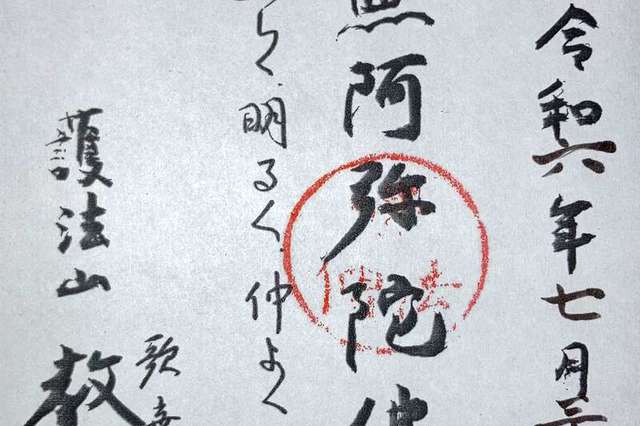 令和六年七月三
無阿弥陀佛
く明るく仲よく
護法山
教
歌舞